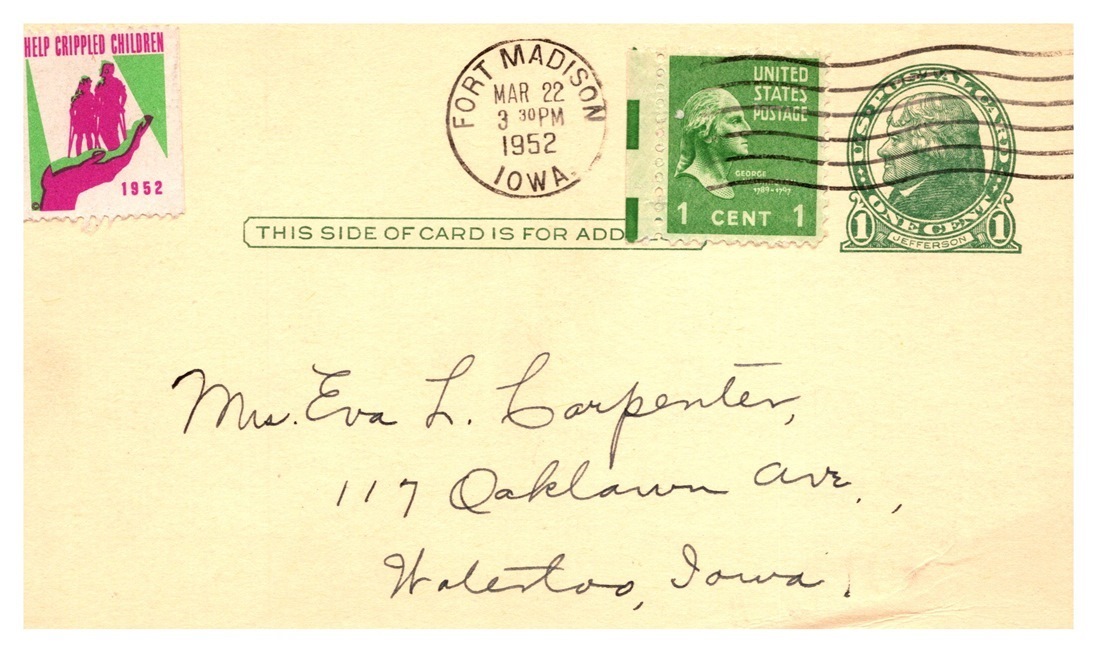 HELP CRIPPLED CHILDREN
1952
FORT MADISON
MAR 22
3 30 PM
1952
IOWA.
UNITED
STATES
POSTAGE
GEORGE
1789-1797
1 CENT 1
U.S. POSTAL CARD
ONE CENT
1 JEFFERSON 1
THIS SIDE OF CARD IS FOR ADD
Mrs. Eva L. Carpenter,
117 Oaklawn Ave.,
Waterloo, Iowa.